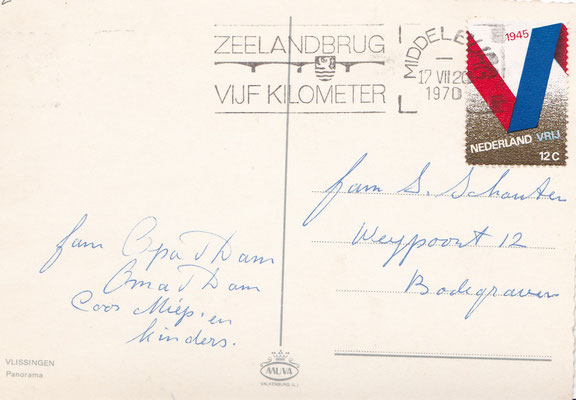 ZEELANDBRUG
VIJF KILOMETER
MIDDELBURG
17 VII 20
1970
1945
NEDERLAND VRIJ
12 C
fam S. Schouten
Weypoort 12
Bodegraven
fam Opa
Oma
Coos Miep, en
kinders.
VLISSINGEN
Panorama
MUVA
VALKENBURG (L.)